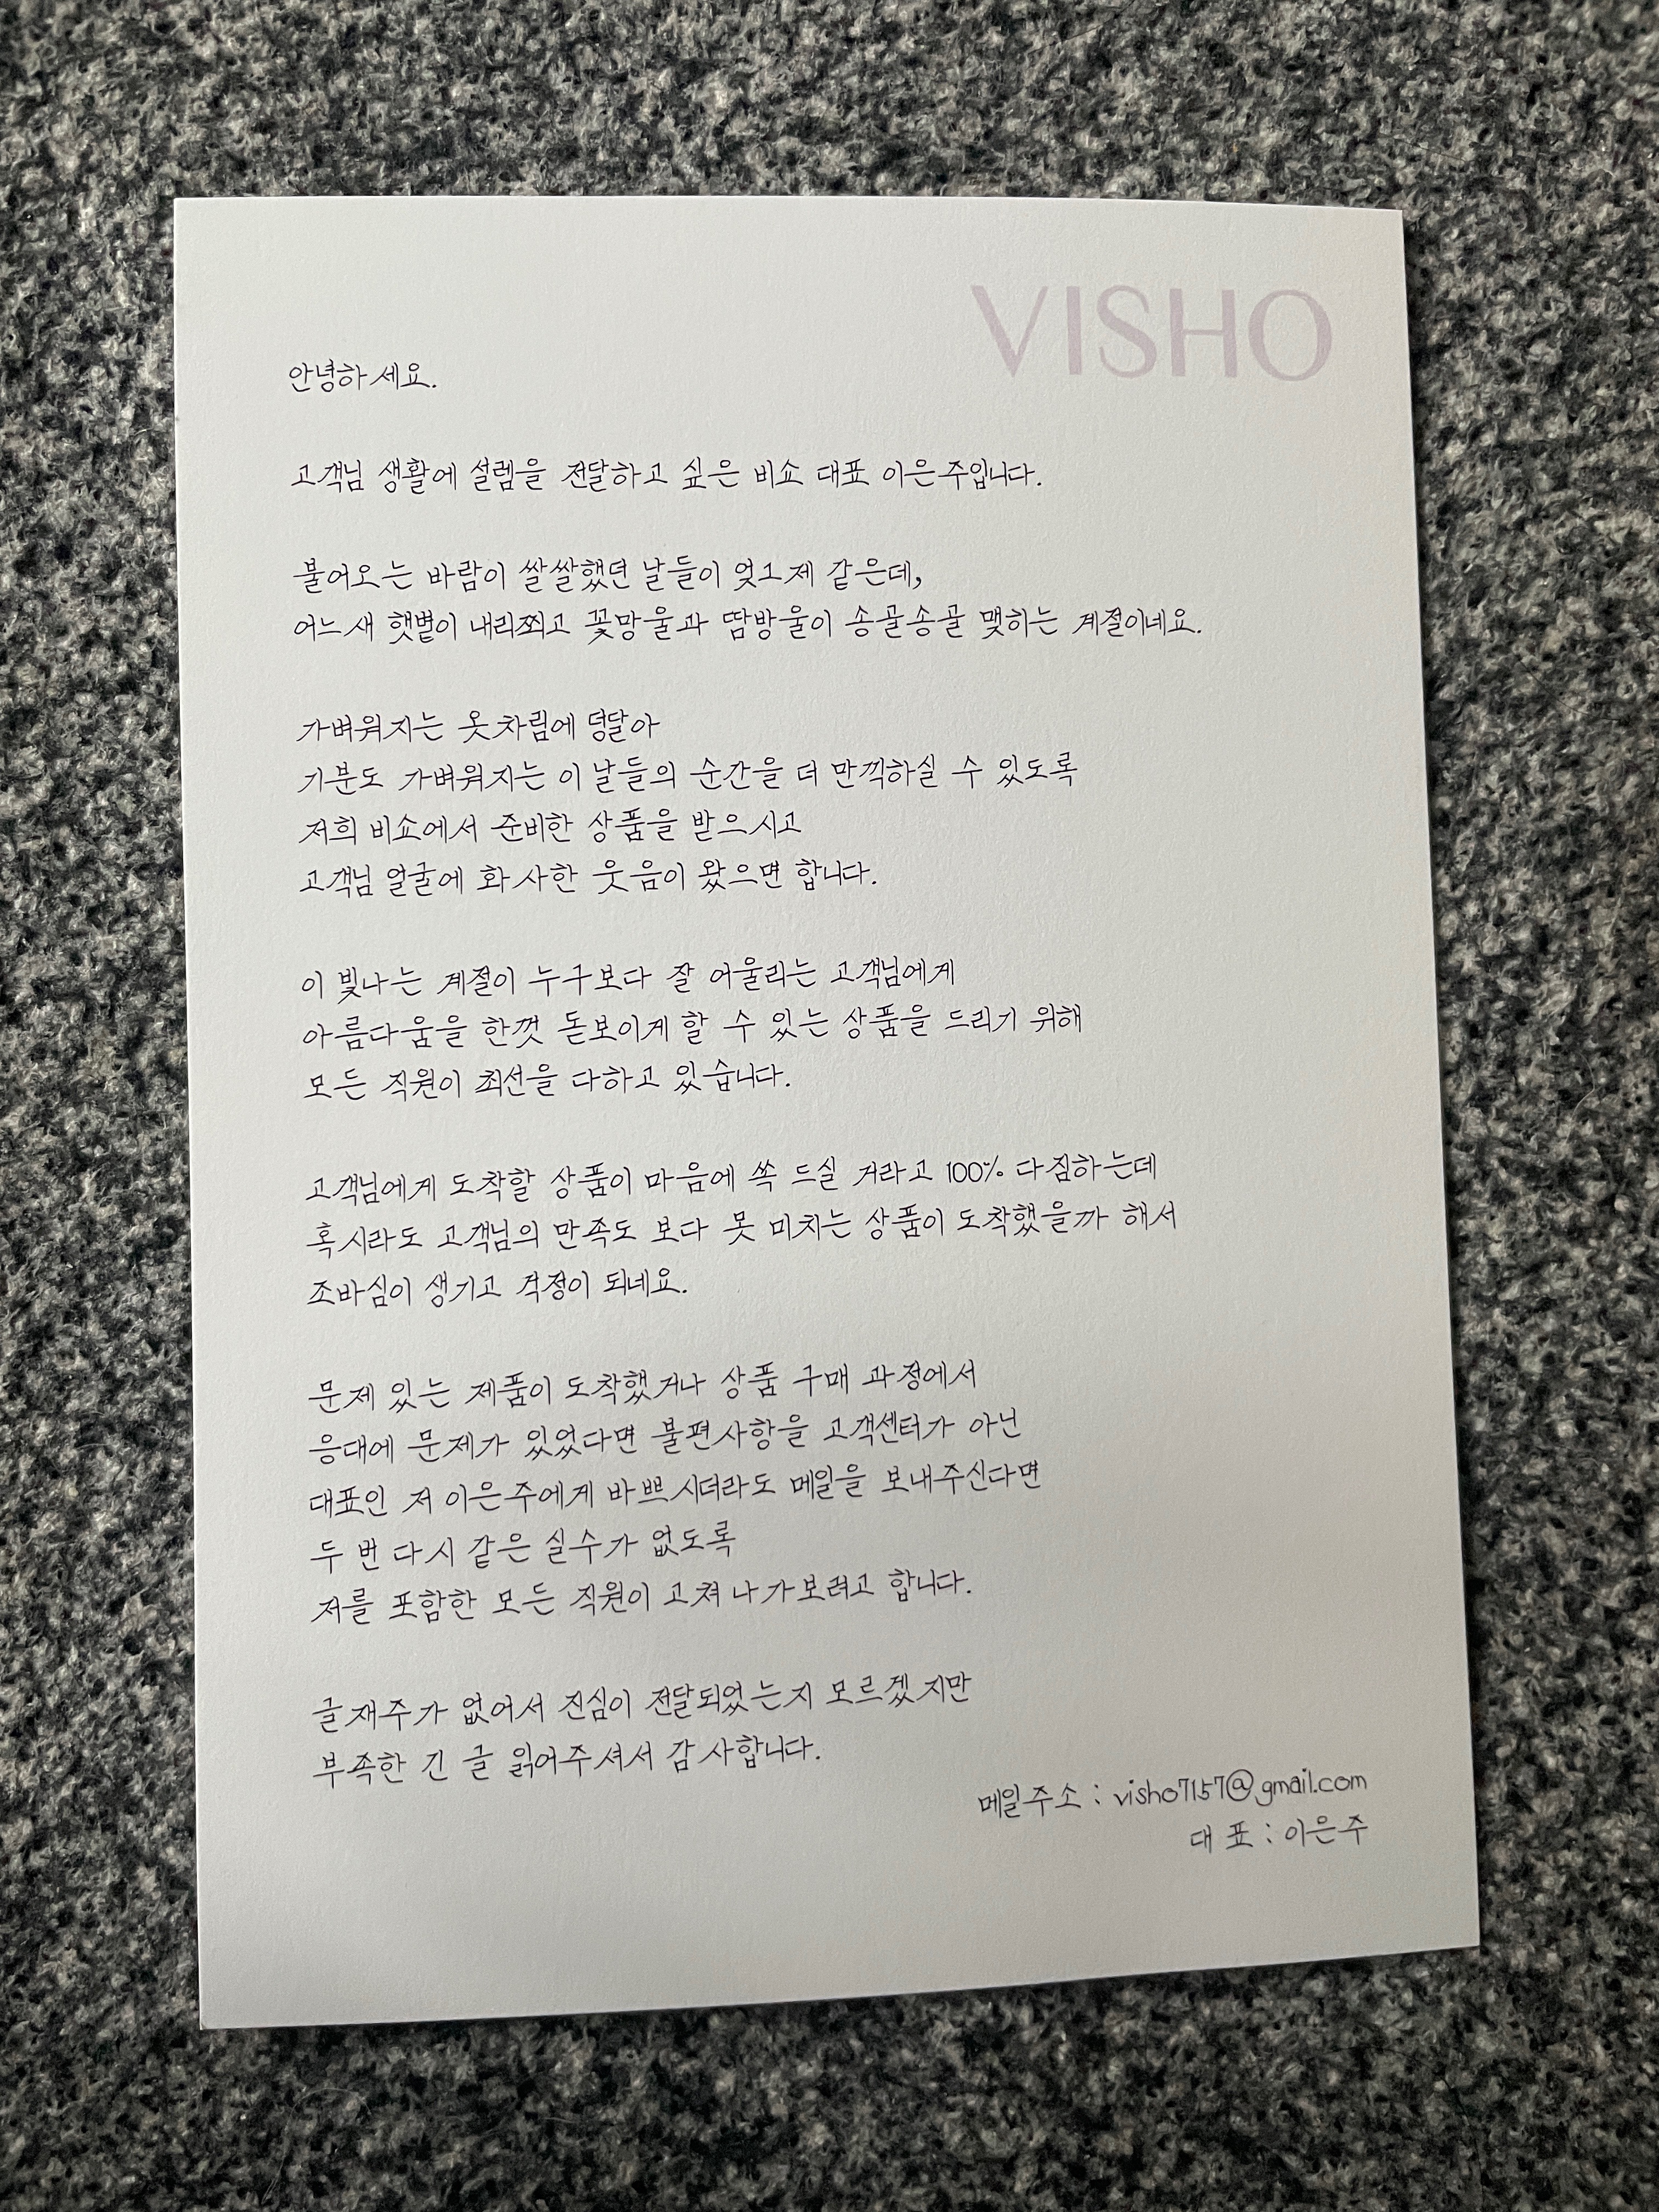 VISHO
안녕하세요.
고객님 생활에 설렘을 전달하고 싶은 비쇼 대표 이은주입니다.
불어오는 바람이 쌀쌀했던 날들이 엊그제 같은데,
어느새 햇볕이 내리쬐고 꽃망울과 땀방울이 송골송골 맺히는 계절이네요.
가벼워지는 옷차림에 덩달아
기분도 가벼워지는 이 날들의 순간을 더 만끽하실 수 있도록
저희 비쇼에서 준비한 상품을 받으시고
고객님 얼굴에 화사한 웃음이 왔으면 합니다.
이 빛나는 계절이 누구보다 잘 어울리는 고객님에게
아름다움을 한껏 돋보이게 할 수 있는 상품을 드리기 위해
모든 직원이 최선을 다하고 있습니다.
고객님에게 도착할 상품이 마음에 쏙 드실 거라고 100% 다짐하는데
혹시라도 고객님의 만족도 보다 못 미치는 상품이 도착했을까 해서
조바심이 생기고 걱정이 되네요.
문제 있는 제품이 도착했거나 상품 구매 과정에서
응대에 문제가 있었다면 불편사항을 고객센터가 아닌
대표인 저 이은주에게 바쁘시더라도 메일을 보내주신다면
두 번 다시 같은 실수가 없도록
저를 포함한 모든 직원이 고쳐나가보려고 합니다.
글재주가 없어서 진심이 전달되었는지 모르겠지만
부족한 긴 글 읽어주셔서 감사합니다.
메일주소 : visho7157@gmail.com
대표 : 이은주